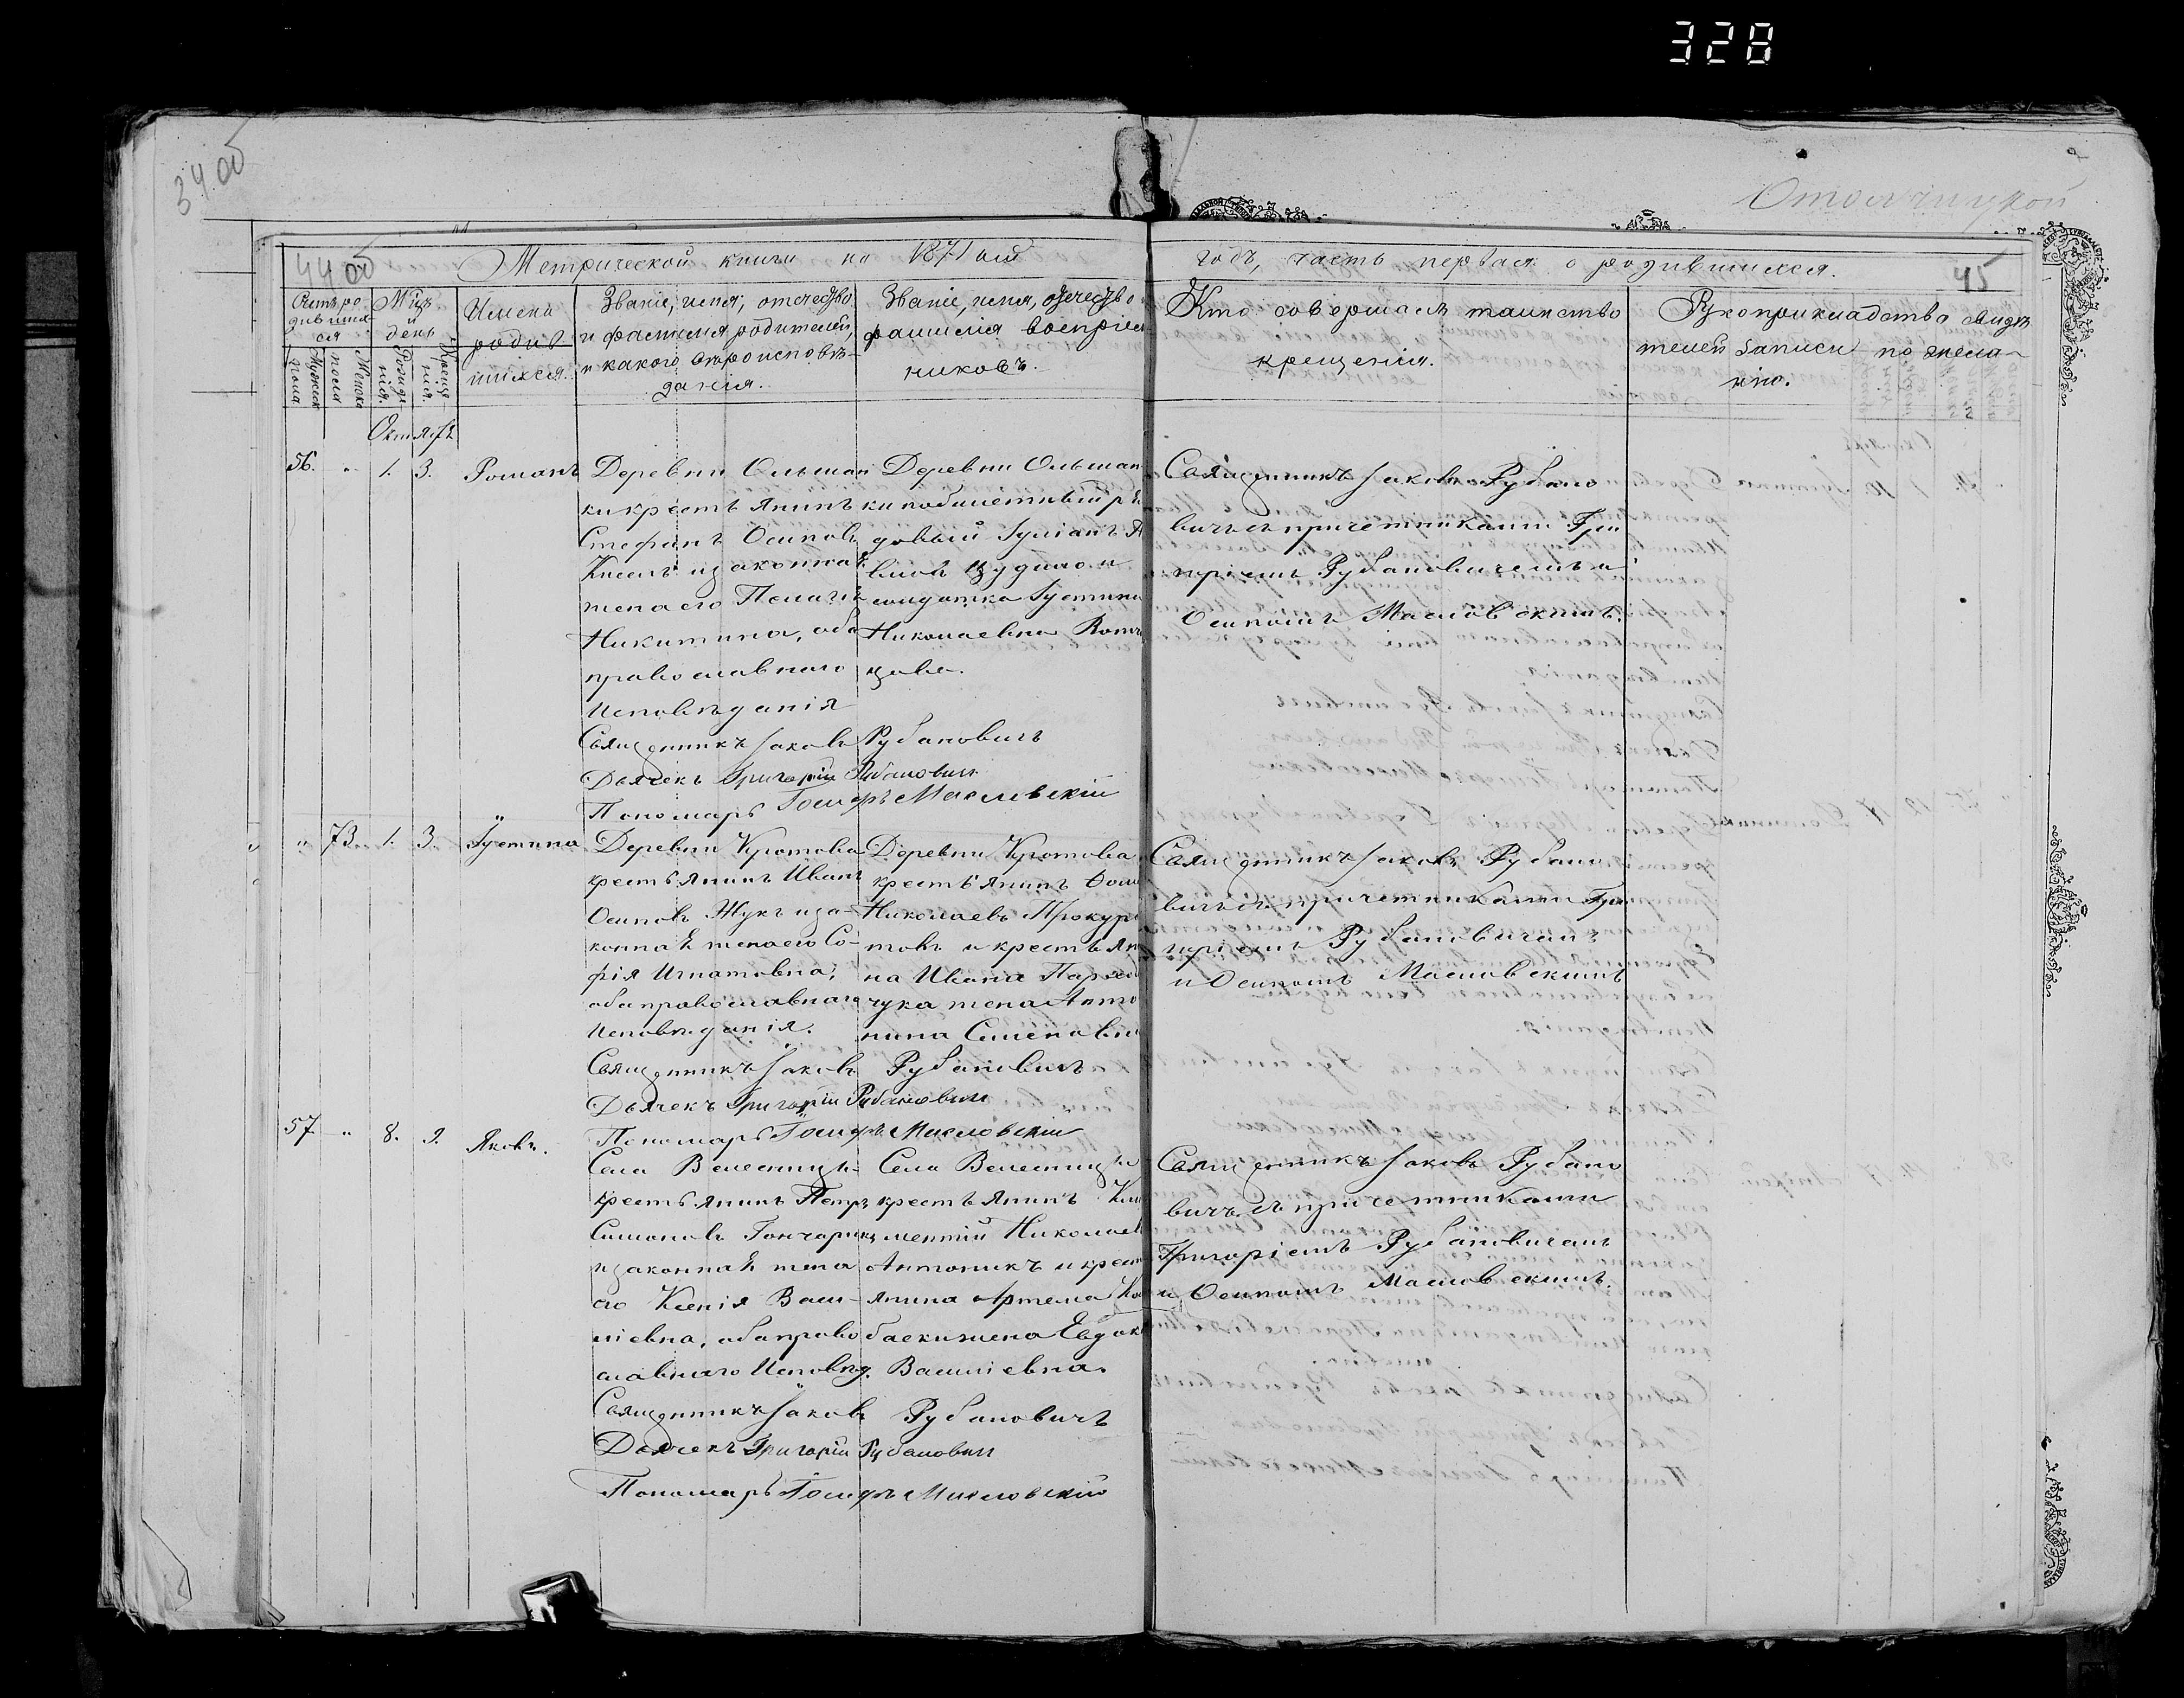 328
34 об
44 об
Метрической книги на 1871 ый
годъ, часть первая о родившихся.
45
Счетъ ро
дивших
ся
Мужеск
пола
Женска
пола
М-цъ
и
день
Рожде
нія.
Креще
нія.
Имена
родив
шихся.
Званіе, имя, отечество
и фамилія родителей,
и какого вѣроисповѣ-
данія.
Званіе, имя, отечество
фамилія воспріем
никовъ.
Кто совершалъ таинство
крещенія.
Рукоприкладство свидѣ
телей записи по жела-
нію.
Октябрь
56. „ 1. 3. Романъ
Деревни Ольшан
ки крестьянинъ
Стефанъ Осиповъ
Кисель и законная
жена его
Никитина, оба
православнаго
исповѣданія
Деревни Ольшан
ки побилетный ря
довый Іуліанъ
и
солдатка Іустина
Николаевна
цова.
Священникъ Іаковъ Рубано
вичъ съ причетниками Гри
горіемъ Рубановичемъ и
Осипомъ Масловскимъ.
Священникъ Іаковъ Рубановичъ
Дьячекъ Григорій Рубановичъ
Пономарь Іосифъ Масловскій
„ 73. 1. 3. Іустина
Деревни Кротова
крестьянинъ Иванъ
Осиповъ Жукъ и за-
конная жена его Со-
фія Игнатовна,
оба православнаго
исповѣданія.
Деревни Кротова
крестьянинъ
Николаевъ Прокур
товъ и крестьян
на Ивана
чука жена Анто
нина Семеновна
Священникъ Іаковъ Рубано
вичъ съ причетниками Гри
горіемъ Рубановичемъ
и Осипомъ Масловскимъ
Священникъ Іаковъ Рубановичъ
Дьячекъ Григорій Рубановичъ
Пономарь Іосифъ Масловскій
57. „ 8. 9. Яковъ.
Села Велесницы
крестьянинъ Петръ
Симоновъ Гончарикъ
и законная жена
его Ксенія Васи-
ліевна, оба право
славнаго исповѣд.
Села Велесницы
крестьянинъ Кли
ментій Николаев
Антоникъ и крест
янина Артема
жена Евдок
Василіевна.
Священникъ Іаковъ Рубано
вичъ съ причетниками
Григоріемъ Рубановичемъ
и Осипомъ Масловскимъ.
Священникъ Іаковъ Рубановичъ
Дьячекъ Григорій Рубановичъ
Пономарь Іосифъ Масловскій